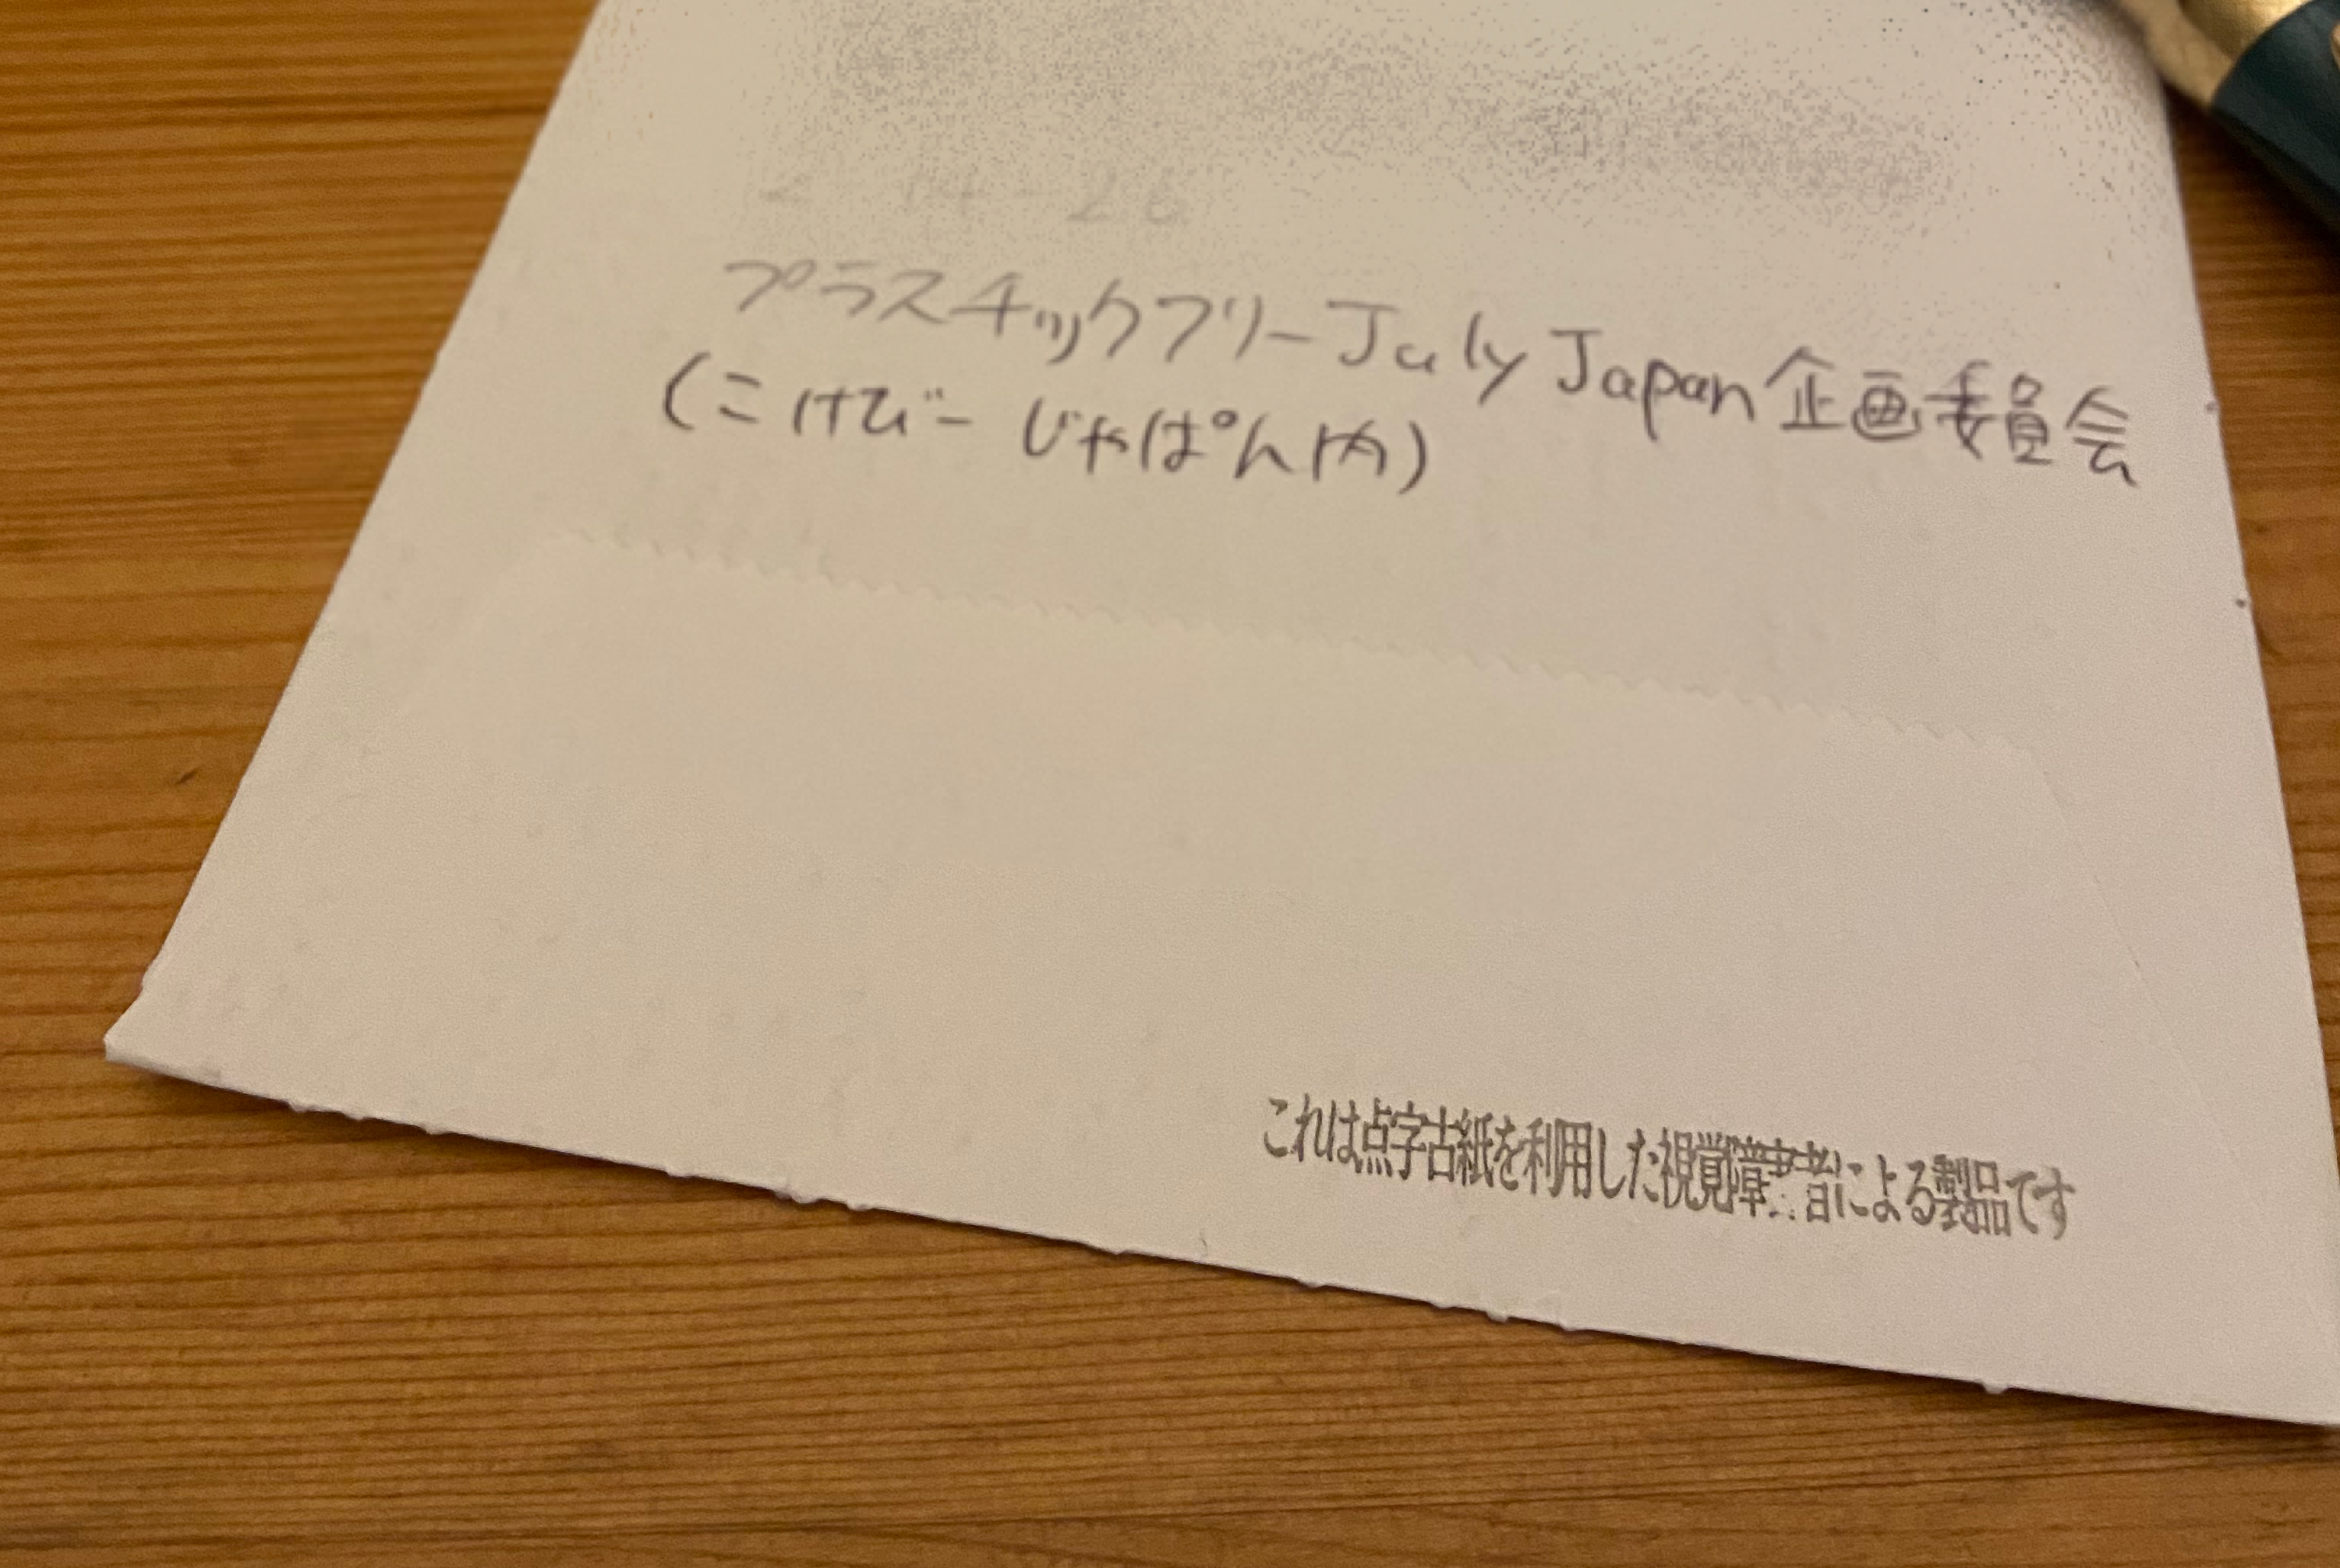 プラスチックフリーJuly Japan企画委員会
(こけびー じゃぱん内)
これは点字古紙を利用した視覚障害者による製品です